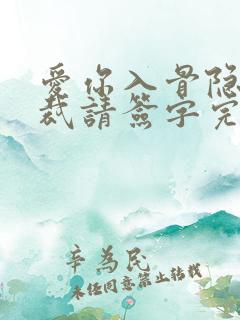 愛你入骨隐
裁請簽字完
辛為民
未经同意禁止转载